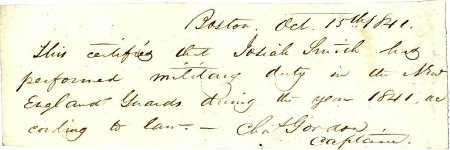 Boston. Oct. 15th 1841.
This certifies that Josiah Smith has
performed military duty in the New
England Guards during the year 1841, ac
cording to law. — Chas Gordon.
Captain.